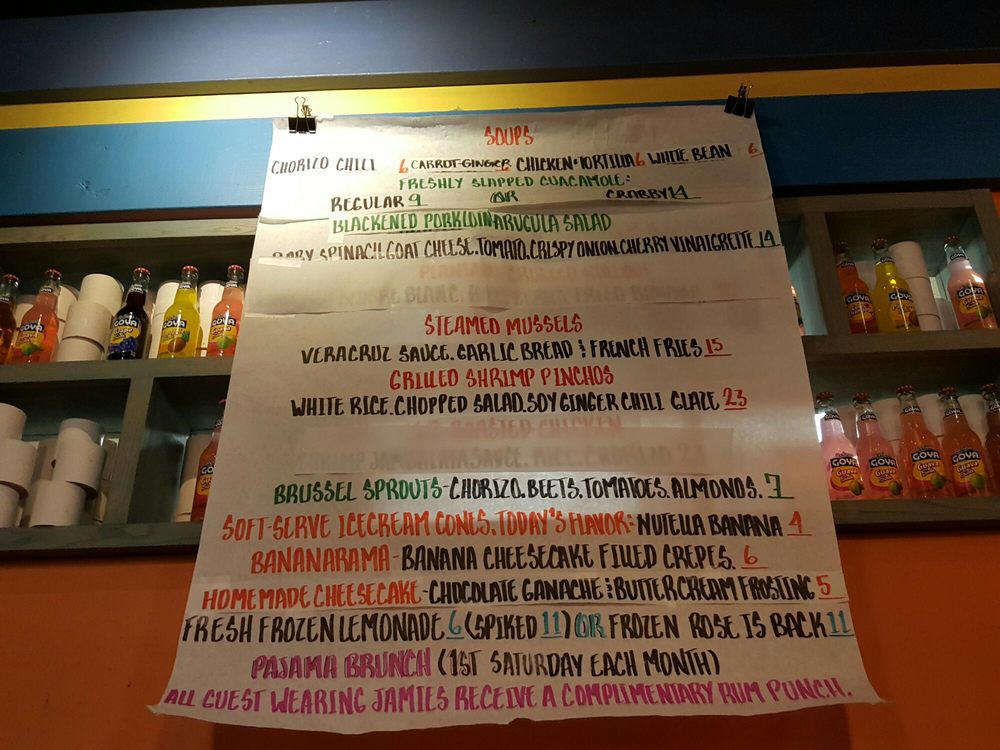 SOUPS
CHORIZO CHILI 6 CARROT-GINGER 6 CHICKEN-TORTILLA 6 WHITE BEAN 6
FRESHLY SLAPPED GUACAMOLE:
REGULAR 9 OR CRABBY 14
BLACKENED PORKLOIN-ARUGULA SALAD
BABY SPINACH.GOAT CHEESE.TOMATO.CRISPY ONION.CHERRY VINAIGRETTE 14
STEAMED MUSSELS
VERACRUZ SAUCE.GARLIC BREAD & FRENCH FRIES 15
GRILLED SHRIMP PINCHOS
WHITE RICE.CHOPPED SALAD.SOY GINGER CHILI GLAZE 23
ROASTED CHICKEN
BRUSSEL SPROUTS-CHORIZO.BEETS.TOMATOES.ALMONDS. 7
SOFT-SERVE ICECREAM CONES.TODAY'S FLAVOR: NUTELLA BANANA 4
BANANARAMA-BANANA CHEESECAKE FILLED CREPES. 6
HOMEMADE CHEESECAKE-CHOCOLATE GANACHE & BUTTERCREAM FROSTING 5
FRESH FROZEN LEMONADE 6 (SPIKED 11) OR FROZEN ROSE IS BACK 11
PAJAMA BRUNCH (1ST SATURDAY EACH MONTH)
ALL GUEST WEARING JAMIES RECEIVE A COMPLIMENTARY RUM PUNCH.
GOYA
GOYA
GOYA
GOYA
GOYA
GOYA
GOYA
GOYA
GOYA
GOYA
Guava
GOYA
Guava